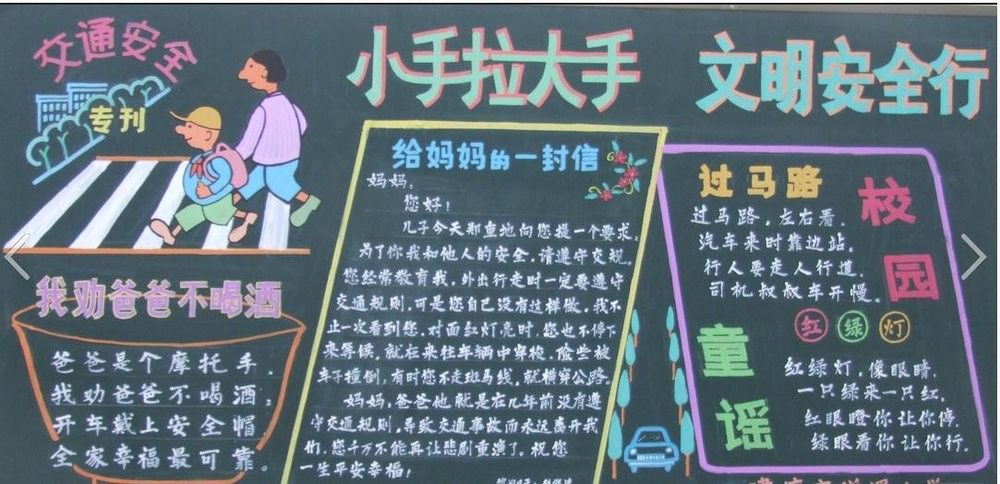 交通安全
专刊
小手拉大手
文明安全行
我劝爸爸不喝酒
爸爸是个摩托手.
我劝爸爸不喝酒;
开车戴上安全帽
全家幸福最可靠.
给妈妈的一封信
妈妈:
您好!
儿子今天郑重地向您提一个要求.
为了你我和他人的安全,请遵守交规.
您经常教育我,外出行走时一定要遵守
交通规则,可是您自己没有这样做,我不
止一次看到您,对面红灯亮时,您也不停下
来等候,就在来往车辆中穿梭,险些被
车子撞倒;有时您不走斑马线,就横穿公路.
妈妈,爸爸他就是在几年前没有遵
守交通规则,导致交通事故而永远离开我
们,您千万不能再让悲剧重演了,祝您
一生平安幸福!
校园
童谣
过马路
过马路,左右看.
汽车来时靠边站.
行人要走人行道.
司机叔叔车开慢.
红绿灯
红绿灯,像眼睛.
一只绿来一只红.
红眼瞪你让你停.
绿眼看你让你行.